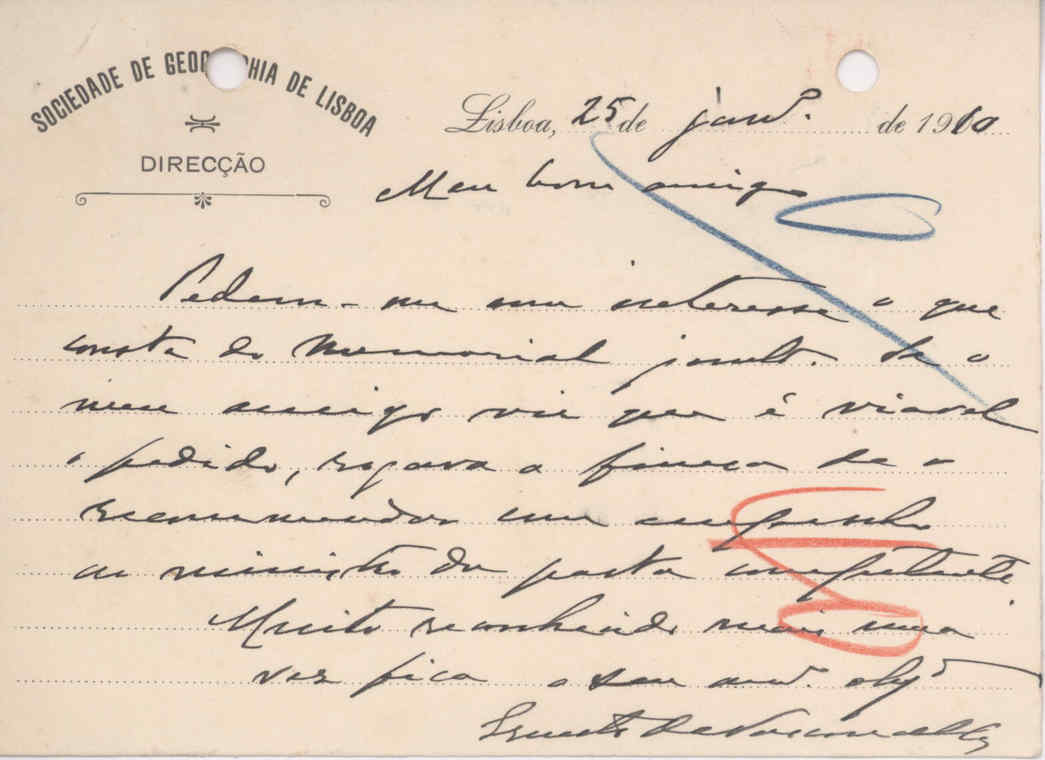 SOCIEDADE DE GEOGRAPHIA DE LISBOA
DIRECÇÃO
Lisboa, 25 de janr.º de 1910
Meu bom amigo
Pedem-me me interesse o que
consta do Memorial junto. Se o
meu amigo vir que é viavel
o pedido, rogava a fineza de o
recommendar com empenho
ao ministro da pasta competente
Muito reconhecido mais uma
vez fica o seu am.º obgº
Ernesto de Vasconcellos